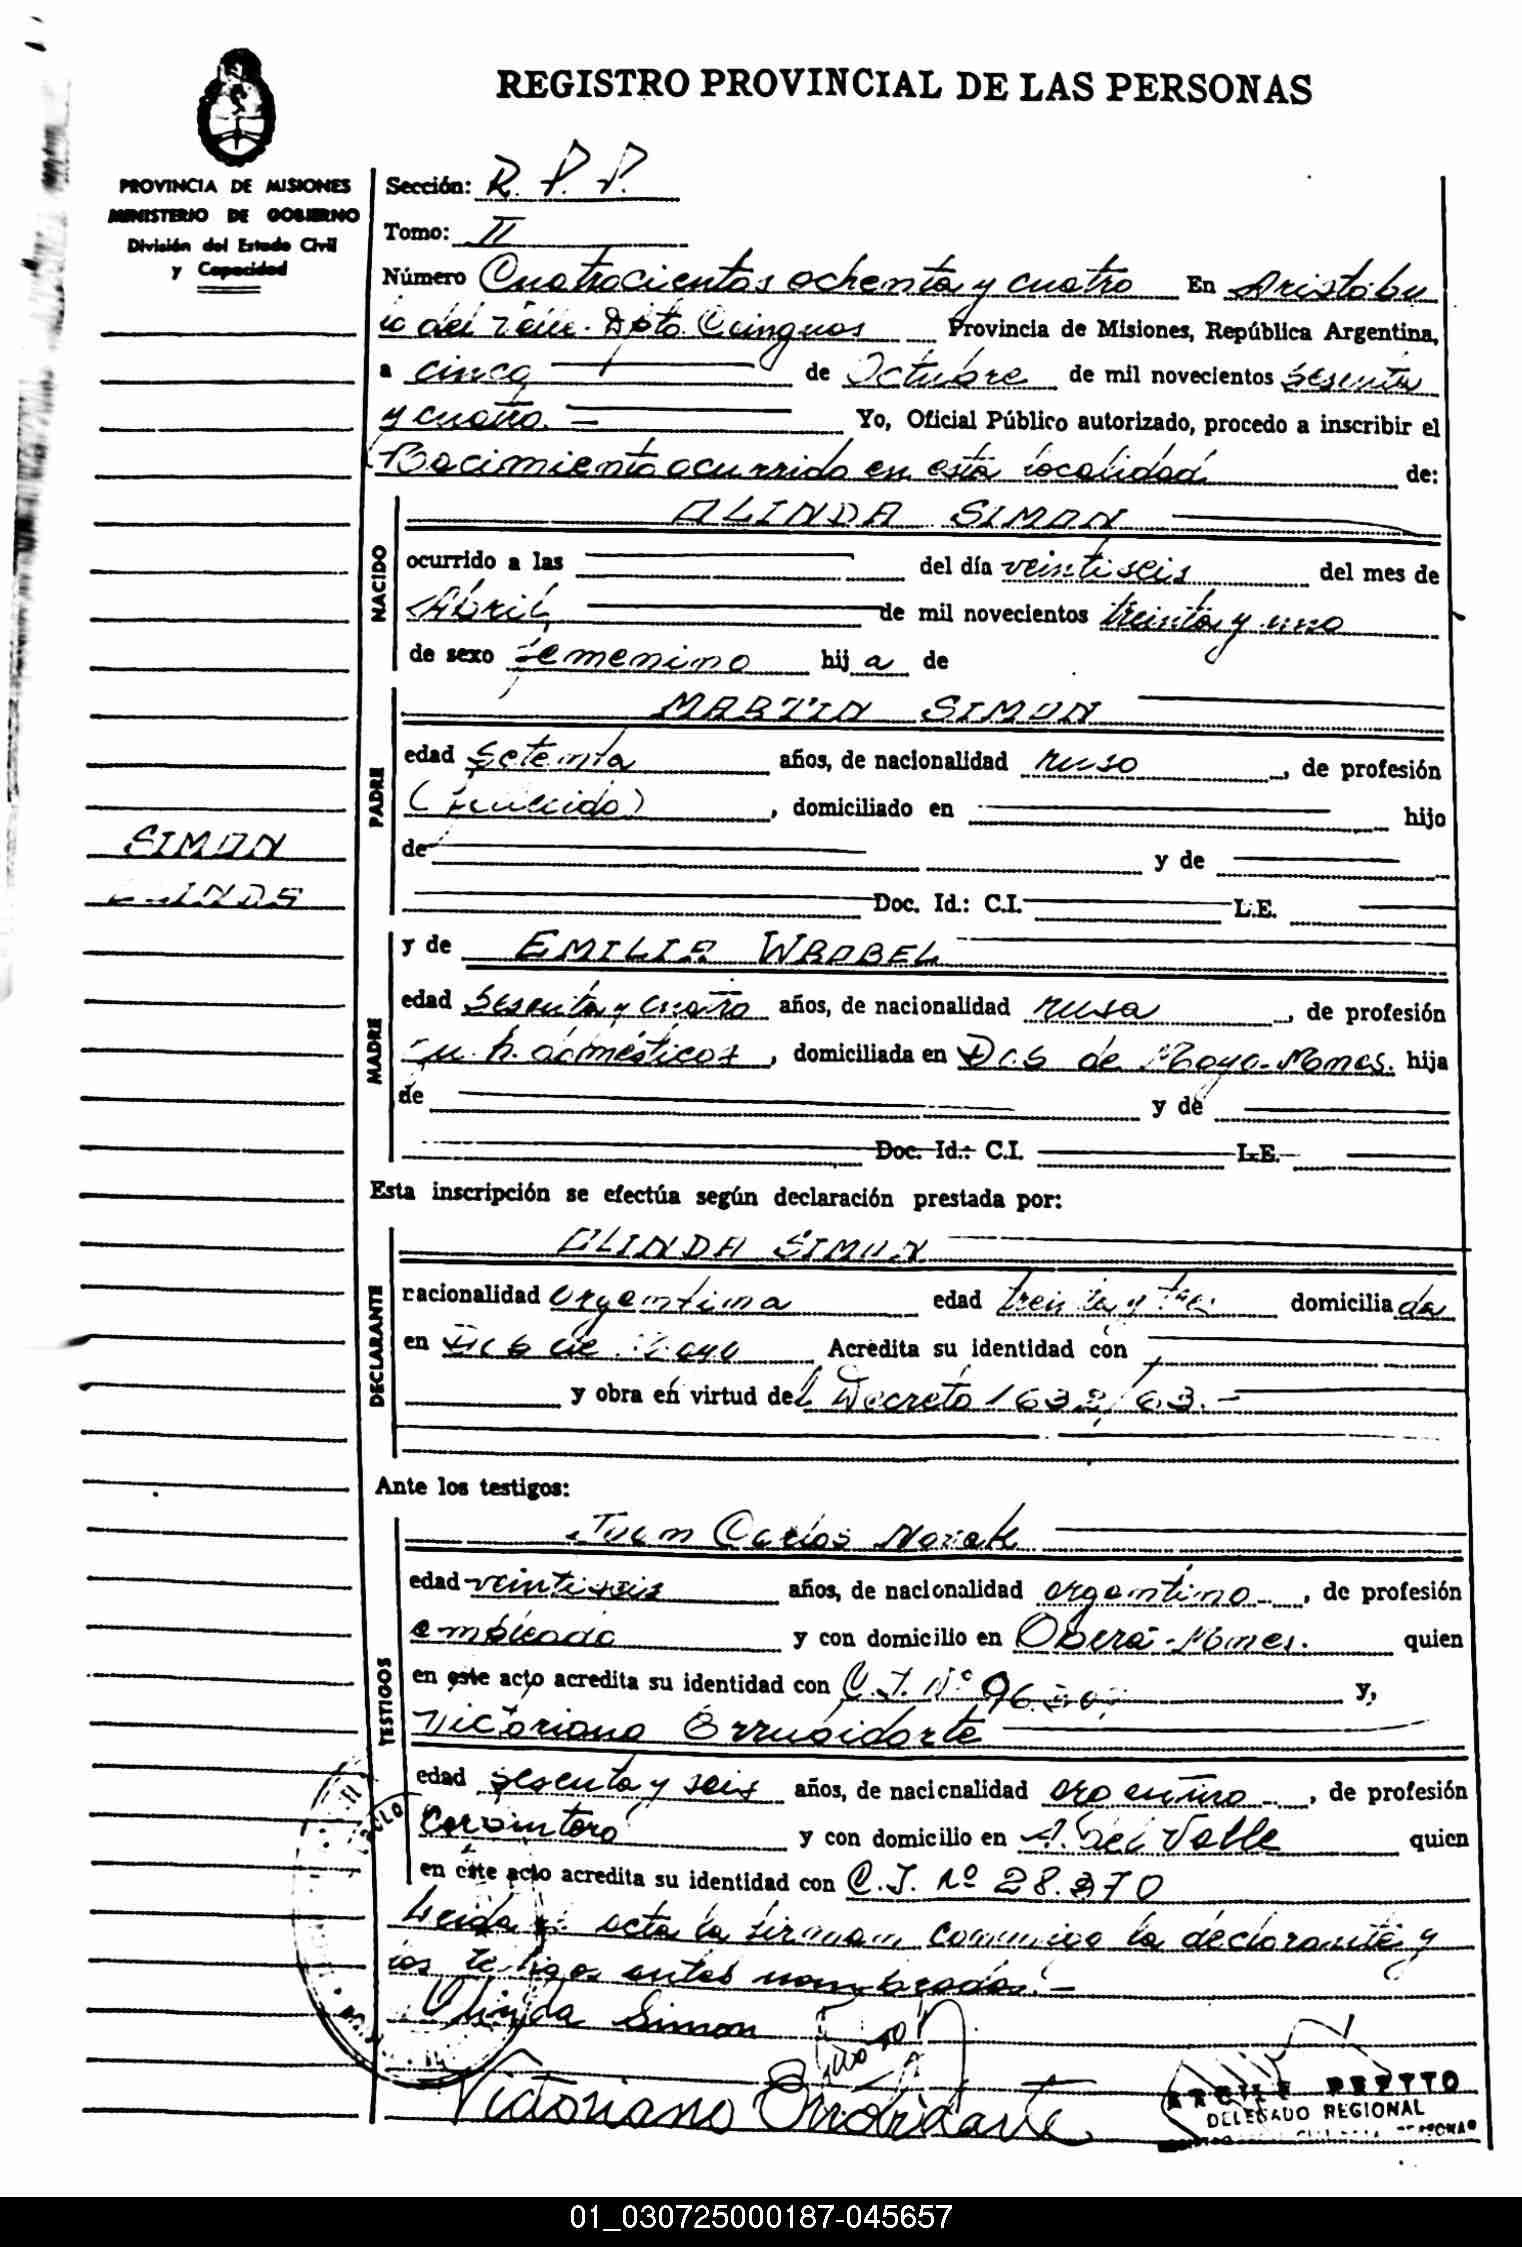 REGISTRO PROVINCIAL DE LAS PERSONAS
PROVINCIA DE MISIONES
MINISTERIO DE GOBIERNO
División del Estado Civil
y Capacidad
Sección: R. P. P.
Tomo: II
Número Cuatrocientos ochenta y cuatro En Aristóbu
lo del Valle. Dpto. Cainguas Provincia de Misiones, República Argentina,
a cinco de Octubre de mil novecientos sesenta
y cuatro. Yo, Oficial Público autorizado, procedo a inscribir el
Nacimiento ocurrido en esta localidad de:
NACIDO
OLINDA SIMON
ocurrido a las del día veintiseis del mes de
Abril de mil novecientos treinta y uno
de sexo femenino hij a de
PADRE
MARTIN SIMON
edad setenta años, de nacionalidad ruso, de profesión
(fallecido), domiciliado en hijo
de y de
Doc. Id.: C.I. L.E.
SIMON
MADRE
y de EMILIA WROBEL
edad sesenta y cuatro años, de nacionalidad rusa, de profesión
q. h. domésticos, domiciliada en Dos de Mayo-Mnes. hija
de y de
Doc. Id.: C.I. L.E.
Esta inscripción se efectúa según declaración prestada por:
DECLARANTE
OLINDA SIMON
nacionalidad argentina edad treinta y tres domicilia da
en Dos de Mayo Acredita su identidad con
y obra en virtud del Decreto 1632/63.-
Ante los testigos:
TESTIGOS
Juan Carlos Novak
edad veintiseis años, de nacionalidad argentino, de profesión
empleado y con domicilio en Oberá-Mnes. quien
en este acto acredita su identidad con C.I. Nº y,
Victoriano Errusidarte
edad sesenta y seis años, de nacionalidad argentino, de profesión
Carpintero y con domicilio en A. del Valle quien
en este acto acredita su identidad con C.I. Nº 28.370
Leida el acta la firman conmigo la declarante y
los testigos antes nombrados.-
Olinda Simon
Victoriano
PETTO
DELEGADO REGIONAL
01_030725000187-045657